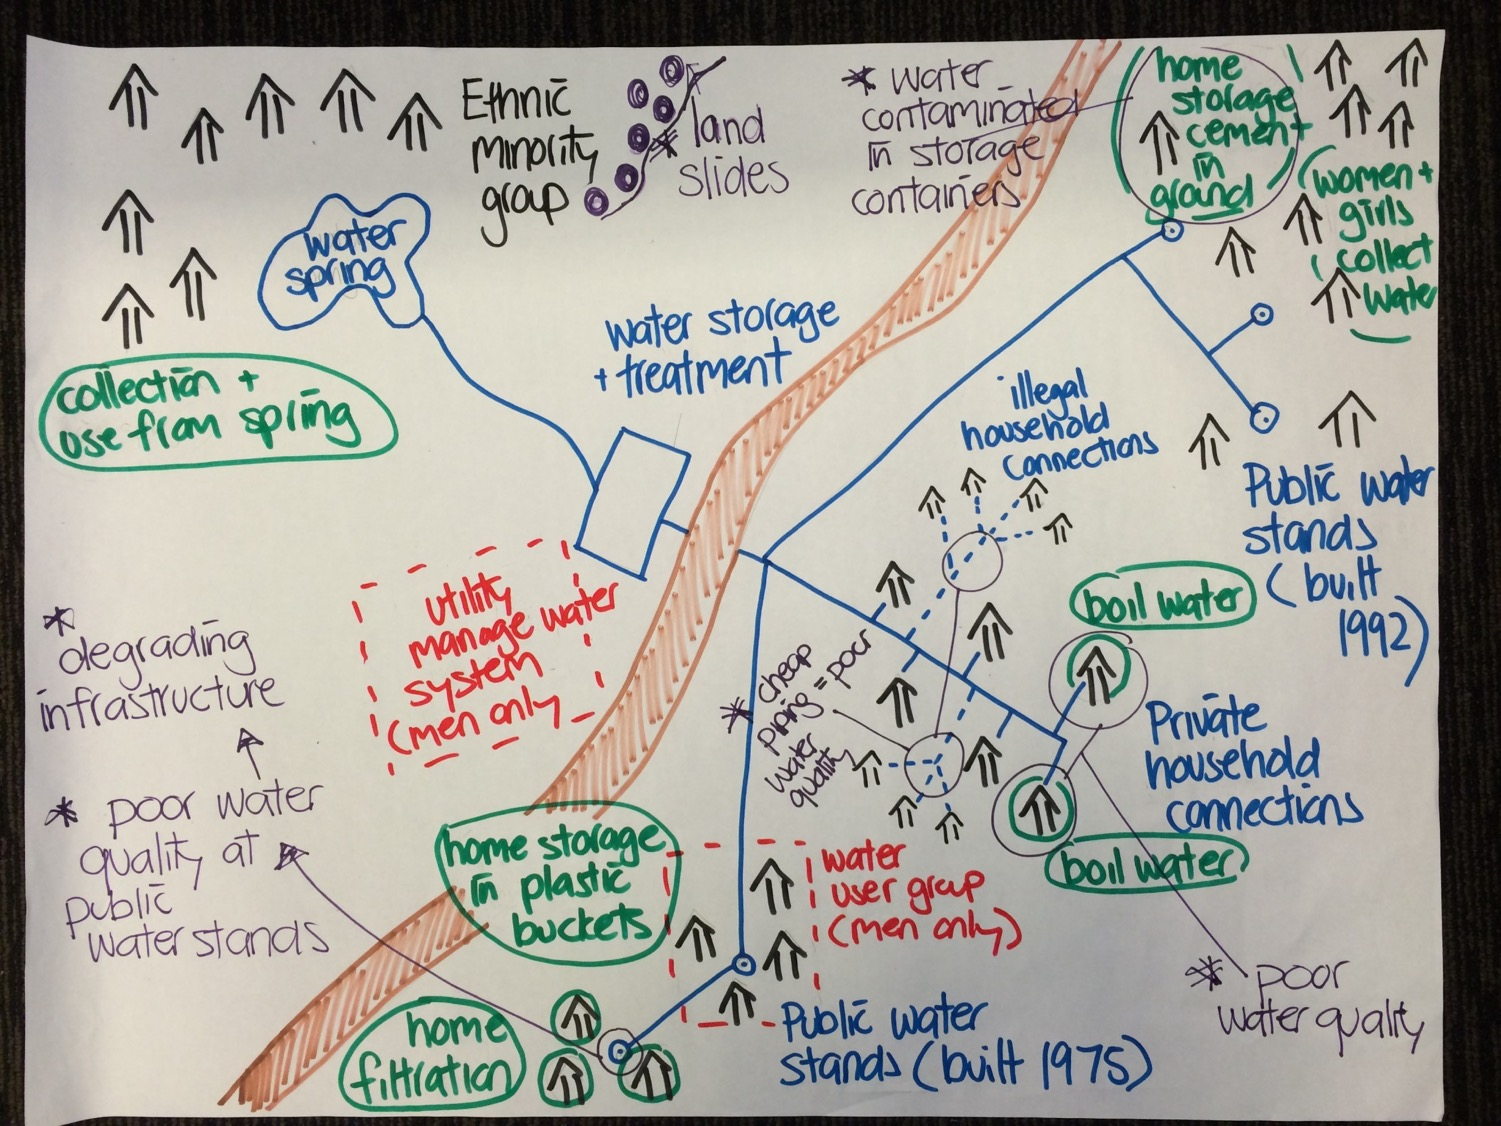 Ethnic
minority
group
* land
slides
* water
contaminated
in storage
containers
home
storage
cement
in
ground
(women +
girls
collect
water
water
spring
water storage
+ treatment
collection +
use from spring
illegal
household
connections
Public water
stands
(built
1992)
boil water
utility
manage water
system
(men only)
* degrading
infrastructure
* cheap
piping = poor
water
quality
Private
household
connections
* poor water
quality at
public
water stands
home storage
in plastic
buckets
water
user group
(men only)
boil water
* poor
water quality
home
filtration
Public water
stands (built 1975)